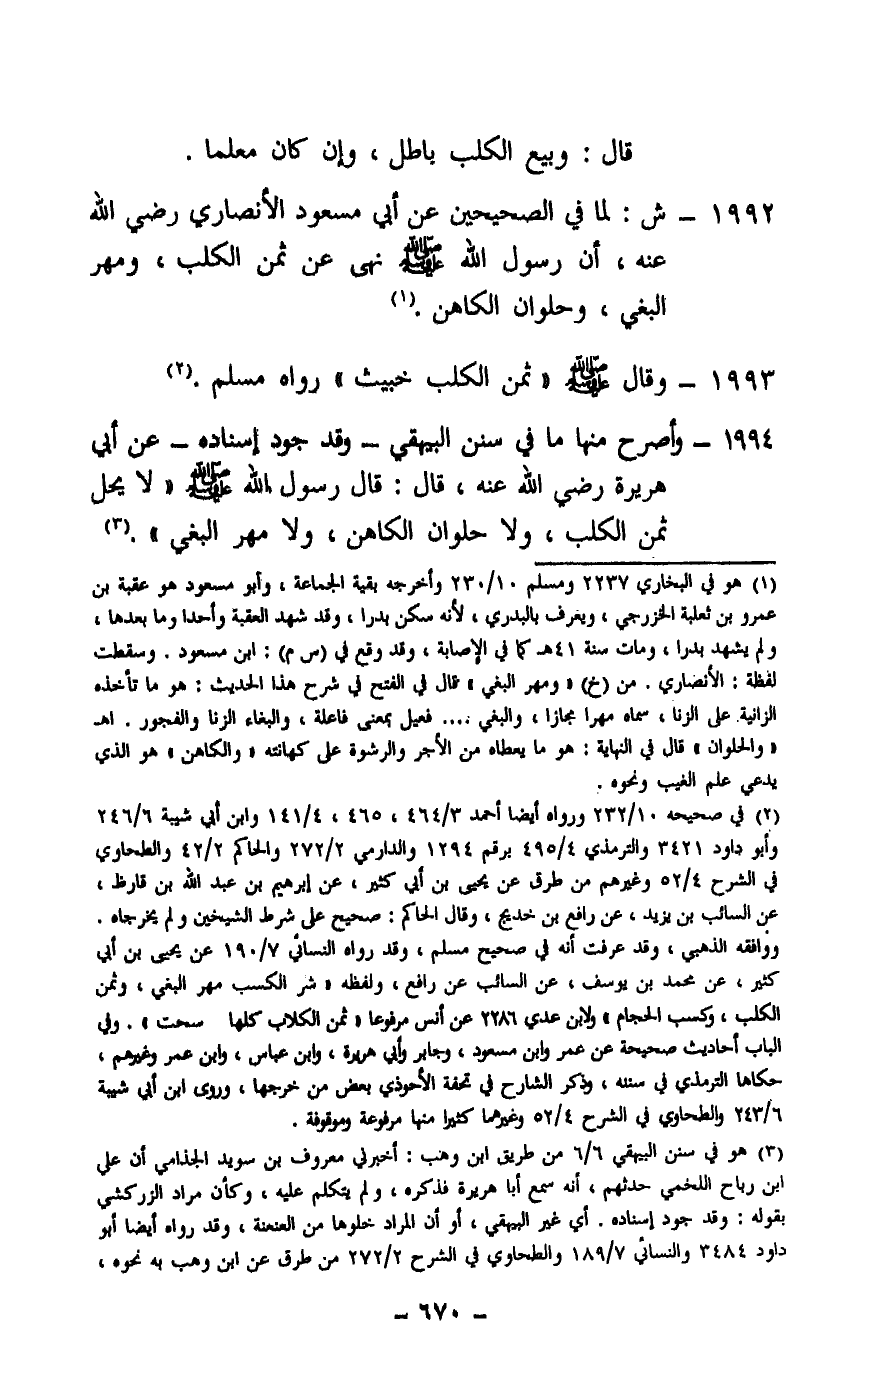 قال : وبيع الكلب باطل ، وإن كان معلما .
١٩٩٢ ـ ش : لما في الصحيحين عن أبي مسعود الأنصاري رضي الله
عنه ، أن رسول الله ﷺ نهى عن ثمن الكلب ، ومهر
البغي ، وحلوان الكاهن .(١)
١٩٩٣ ـ وقال ﷺ « ثمن الكلب خبيث » رواه مسلم .(٢)
١٩٩٤ ـ وأصرح منها ما في سنن البيهقي ـ وقد جود إسناده ـ عن أبي
هريرة رضي الله عنه ، قال : قال رسول الله ﷺ « لا يحل
ثمن الكلب ، ولا حلوان الكاهن ، ولا مهر البغي » .(٣)
(١) هو في البخاري ٢٢٣٧ ومسلم ٢٣٠/١٠ وأخرجه بقية الجماعة ، وأبو مسعود هو عقبة بن
عمرو بن ثعلبة الخزرجي ، ويعرف بالبدري ، لأنه سكن بدرا ، وقد شهد العقبة وأحدا وما بعدها ،
ولم يشهد بدرا ، ومات سنة ٤١هـ كما في الإصابة ، وقد وقع في (س م) : ابن مسعود . وسقطت
لفظة : الأنصاري . من (خ) « ومهر البغي » قال في الفتح في شرح هذا الحديث : هو ما تأخذه
الزانية على الزنا ، سماه مهرا مجازا ، والبغي .... فعيل بمعنى فاعلة ، والبغاء الزنا والفجور . اهـ
« والحلوان » قال في النهاية : هو ما يعطاه من الأجر والرشوة على كهانته « والكاهن » هو الذي
يدعي علم الغيب ونحوه .
(٢) في صحيحه ٢٣٢/١٠ ورواه أيضا أحمد ٤٦٤/٣ ، ٤٦٥ ، ١٤١/٤ وابن أبي شيبة ٢٤٦/٦
وأبو داود ٣٤٢١ والترمذي ٤٩٥/٤ برقم ١٢٩٤ والدارمي ٢٧٢/٢ والحاكم ٤٢/٢ والطحاوي
في الشرح ٥٢/٤ وغيرهم من طرق عن يحيى بن أبي كثير ، عن إبرهيم بن عبد الله بن قارظ ،
عن السائب بن يزيد ، عن رافع بن خديج ، وقال الحاكم : صحيح على شرط الشيخين ولم يخرجاه .
ووافقه الذهبي ، وقد عرفت أنه في صحيح مسلم ، وقد رواه النسائي ١٩٠/٧ عن يحيى بن أبي
كثير ، عن محمد بن يوسف ، عن السائب عن رافع ، ولفظه « شر الكسب مهر البغي ، وثمن
الكلب ، وكسب الحجام » ولابن عدي ٢٢٨٦ عن أنس مرفوعا « ثمن الكلاب كلها سحت » . وفي
الباب أحاديث صحيحة عن عمر وابن مسعود ، وجابر وأبي هريرة ، وابن عباس ، وابن عمر وغيرهم ،
حكاها الترمذي في سننه ، وذكر الشارح في تحفة الأحوذي بعض من خرجها ، وروى ابن أبي شيبة
٢٤٣/٦ والطحاوي في الشرح ٥٢/٤ وغيرهما كثيرا منها مرفوعة وموقوفة .
(٣) هو في سنن البيهقي ٦/٦ من طريق ابن وهب : أخبرني معروف بن سويد الجذامي أن علي
ابن رباح اللخمي حدثهم ، أنه سمع أبا هريرة فذكره ، ولم يتكلم عليه ، وكأن مراد الزركشي
بقوله : وقد جود إسناده . أي غير البيهقي ، أو أن المراد خلوها من العنعنة ، وقد رواه أيضا أبو
داود ٣٤٨٤ والنسائي ١٨٩/٧ والطحاوي في الشرح ٢٧٢/٢ من طرق عن ابن وهب به نحوه ،
ـ ٦٧٠ ـ